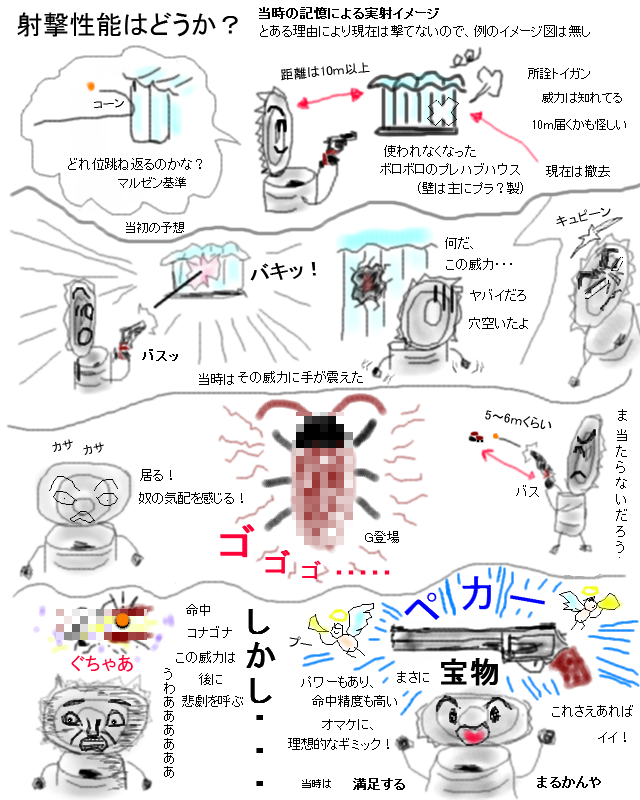 射撃性能はどうか？
当時の記憶による実射イメージ
とある理由により現在は撃てないので、例のイメージ図は無し
コーン
どれ位跳ね返るのかな？
マルゼン基準
距離は10m以上
所詮トイガン
威力は知れてる
10m届くかも怪しい
使われなくなった
ボロボロのプレハブハウス
（壁は主にプラ？製）
現在は撤去
当初の予想
バキッ！
バスッ
何だ、
この威力・・・
ヤバイだろ
穴空いたよ
キュピーン
当時は その威力に手が震えた
カサ カサ
居る！
奴の気配を感じる！
G登場
ゴ ゴ ゴ ・・・・・
5～6mくらい
バス
ま 当たらないだろう・
命中
コナゴナ
ぐちゃあ
この威力は
後に
悲劇を呼ぶ
うわああああああ
しかし・・・
プー
ペカー
まさに 宝物
パワーもあり、
命中精度も高い
オマケに、
理想的なギミック！
これさえあれば
イイ！
当時は 満足する まるかんや